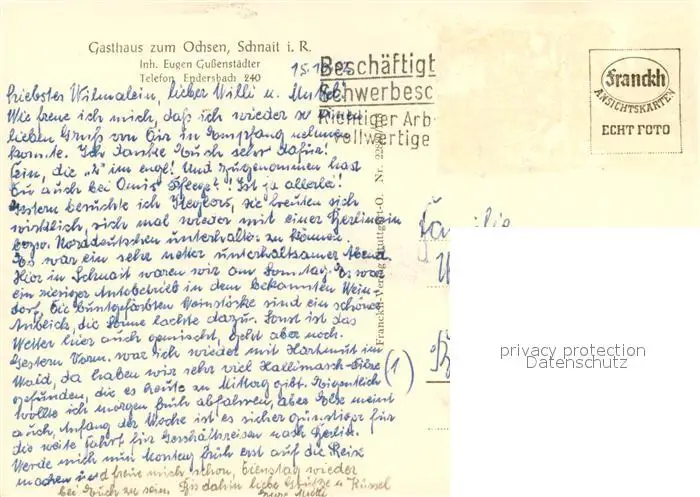 Gasthaus zum Ochsen, Schnait i. R.
Inh. Eugen Gußenstädter
Telefon Endersbach 240
15.10.
Beschäftigt
Schwerbesc
Richtiger Arb
vollwertige
Franckh
ANSICHTSKARTEN
ECHT FOTO
Liebstes Wilmalein, lieber Willi u.
Wie freue ich mich, daß ich wieder so einen
lieben Gruß von Dir in Empfang nehmen
konnte. Ich danke Euch sehr dafür!
die im enge! Und zugenommen hast
Du auch bei Omis Pflege! Ist ja allerlei!
Gestern besuchte ich sie freuten sich
wirklich, sich mal wieder mit einer Berlinerin
bezw. Norddeutschen unterhalten zu können.
Es war ein sehr netter unterhaltsamer Abend.
Hier in Schnait waren wir am Sonntag. Es war
ein riesiger Autobetrieb in dem bekannten Wein-
dorf. Die buntgefärbten Weinstöcke sind ein schöner
Anblick, die Sonne lachte dazu. Sonst ist das
Wetter hier auch gemischt, geht aber noch.
Gestern Vorm. war ich wieder mit Hartmut im
Wald, da haben wir sehr viel Hallimasch-Pilze
gefunden, die es heute zu Mittag gibt. Eigentlich
wollte ich morgen früh abfahren, aber meint
auch, Anfang der Woche ist es sicher günstiger für
die weite Fahrt für Geschäftsreisen nach Berlin.
Werde mich nun Montag früh erst auf die Reise
machen und freue mich schon, Dienstag wieder
bei Euch zu sein. Bis dahin liebe Grüße u. Küssel
Eure Mutti
Franckh-Verlag Stuttgart-O. Nr.
(1)
Familie
W
privacy protection
Datenschutz